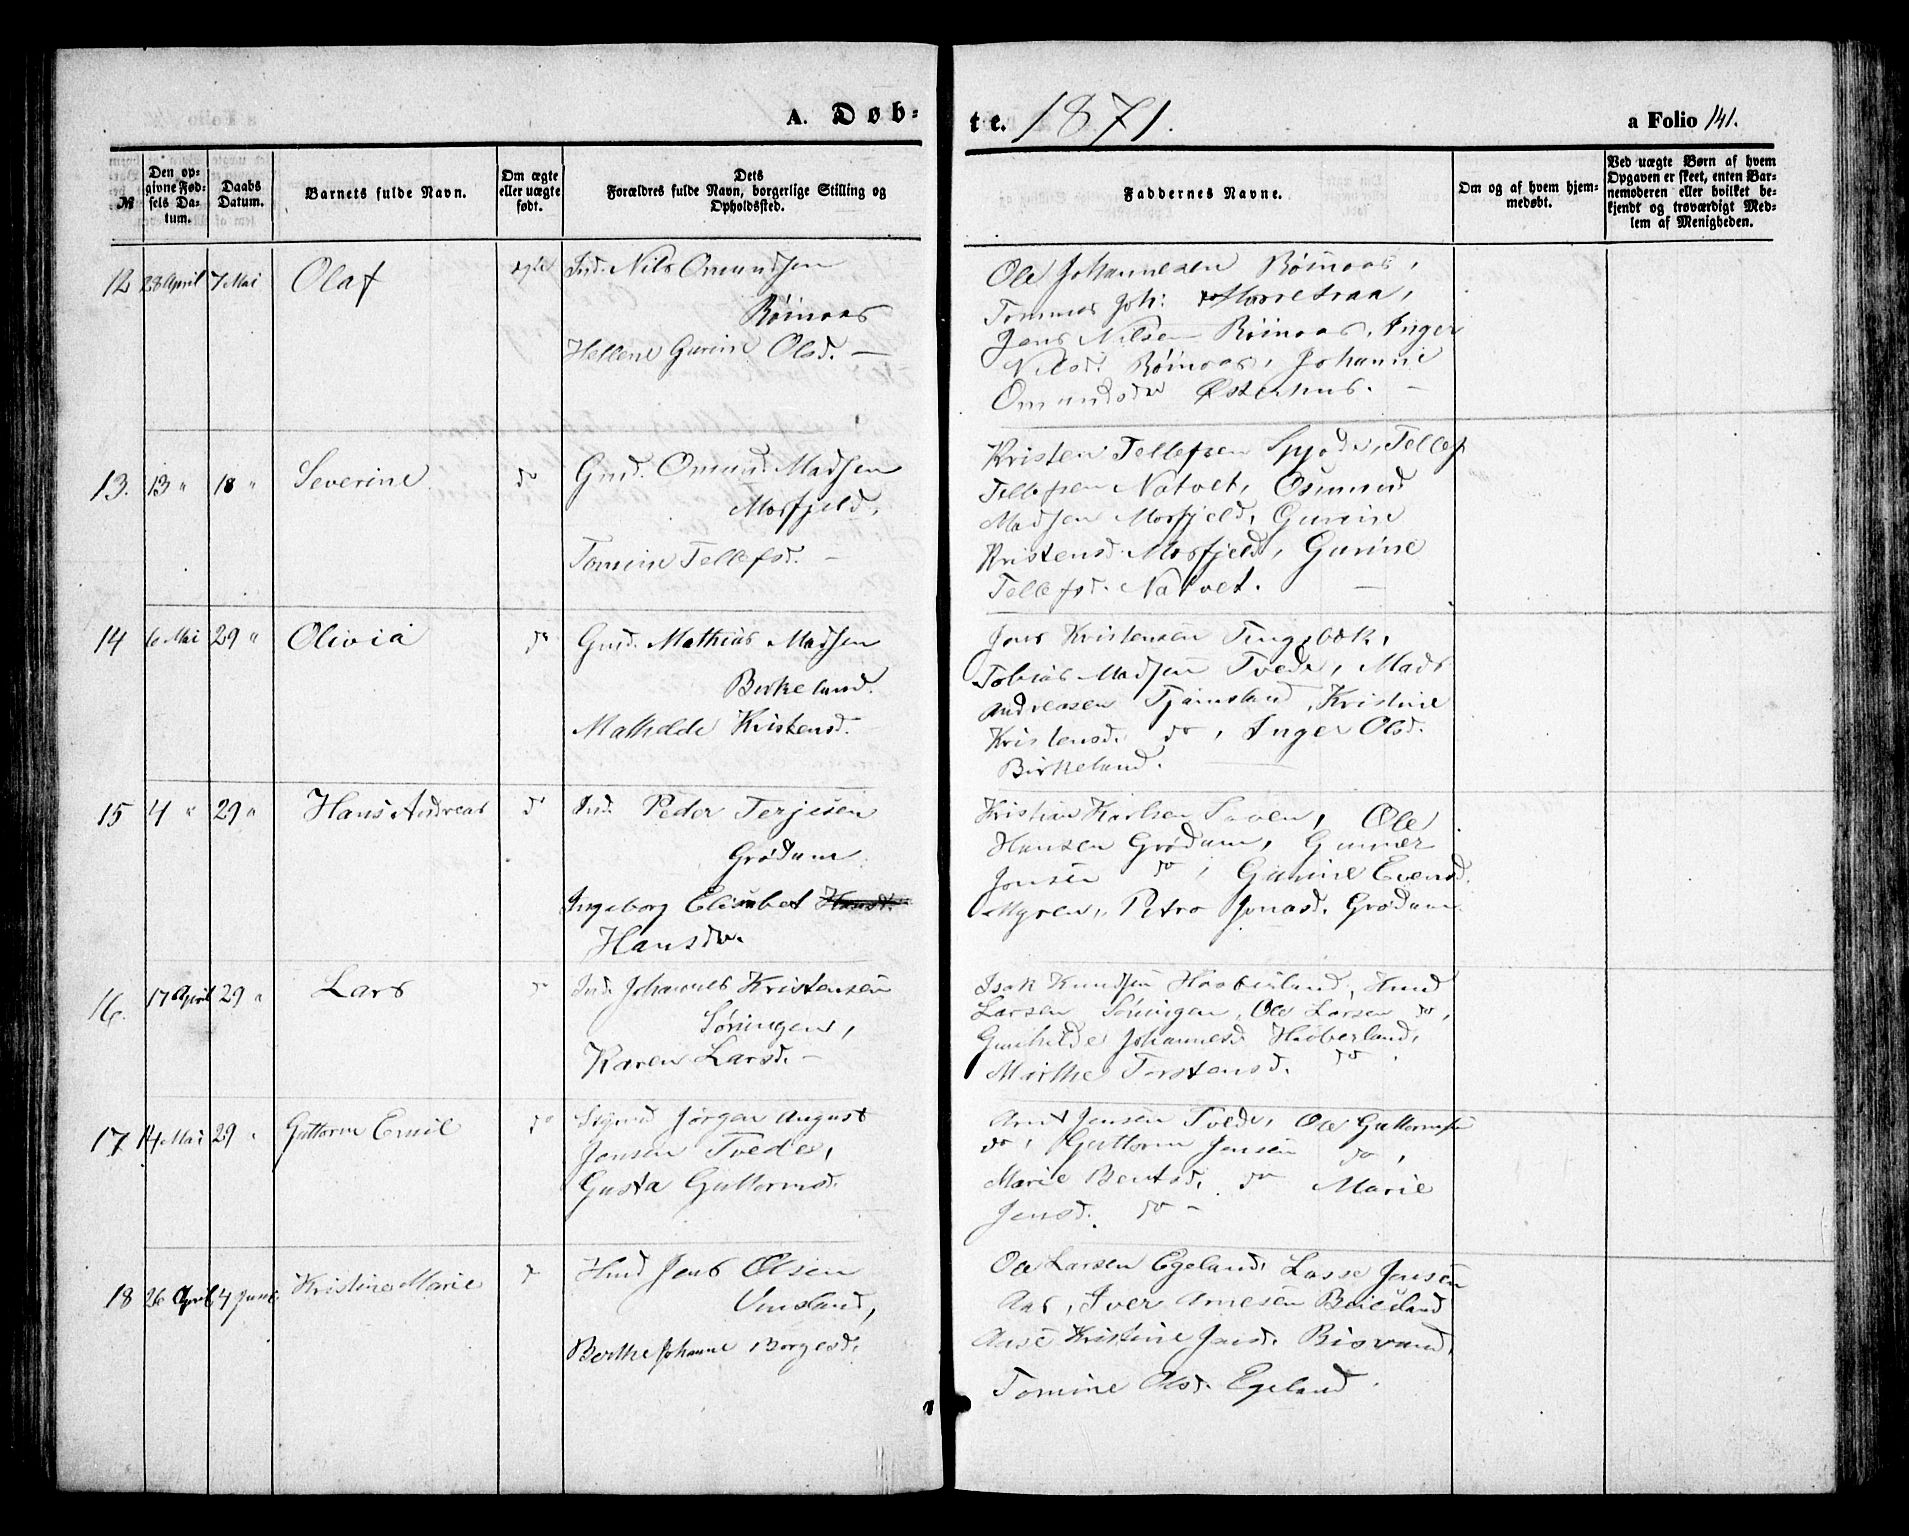 A. Døb-
te. 1871.
a Folio 141.
№
Den op-
givne Fød-
sels Da-
tum.
Daabs
Datum.
Barnets fulde Navn.
Om ægte
eller uægte
født.
Dets
Forældres fulde Navn, borgerlige Stilling og
Opholdssted.
Faddernes Navne.
Om og af hvem hjem-
medøbt.
Ved uægte Børn af hvem
Opgaven er skeet, enten Bar-
nemoderen eller hvilket be-
kjendt og troværdigt Med-
lem af Menigheden.
12 28 April 7 Mai Olaf ægte Ind. Nils Omundsen
Røinaas
Hellene Gurine Olsd. —
Ole Johannesen Røinaas,
Tommas Joh:
Jens Nilsen Røinaas, Inger
Nilsd. Røinaas, Johanne
Omundsdr Østerhus. —
13. 13 " 18 " Severine do Gmd. Omund Madsen
Mosfjeld,
Tomine Tellefsd. —
Kristen Tellefsen, Tellef
Tellefsen Natvet, Osmund
Madsen Mosfjeld, Gurine
Kristensd. Mosfjeld, Gurine
Tellefsd. Natvet. —
14 6 Mai 29 " Olivia do Gmd. Mathias Madsen
Birkeland.
Mathilde Kristensd. —
Jens Kristensen Tingsbæk,
Tobias Madsen Tvede, Mads
Andreasen Tjømsland, Kristine
Kristensd. do, Inger Olsd.
Birkeland. —
15 4 " 29 " Hans Andreas do Ind. Peder Terjesen
Grødum.
Ingeborg Elisabet Hansd.
Hansdr.
Kristian Karlsen, Ole
Hansen Grødum, Gunner
Jonsen do, Gurine Evensd.
Myren, Petra Jonasd. Grødum
16. 17 April 29 " Lars do Ind. Johannes Kristensen
Søningen,
Karen Larsd. —
Isak Knudsen Haaberland, Knud
Larsen Søningen, Ole Larsen do,
Gunhilde Johannesd. Haaberland,
Marthe Torstensd. do.
17 14 Mai 29 " Guttorm Emil do Jørgen August
Jensen Tvede,
Gusta Guttormsd.
Arnt Jensen Tvede, Ole Guttormsen
do, Guttorm Jensen do,
Marie Bentsd. do Marie
Jensd. do —
18 26 April 4 Juni Kristine Marie do Hmd Jens Olsen
Vinsland,
Berthe Johanne Borgesd.
Ole Larsen Egeland, Lasse Jensen
Aas, Iver Arnesen Beiesland
Aase Kristine Jensd. Bisvand,
Tomine Olsd. Egeland.